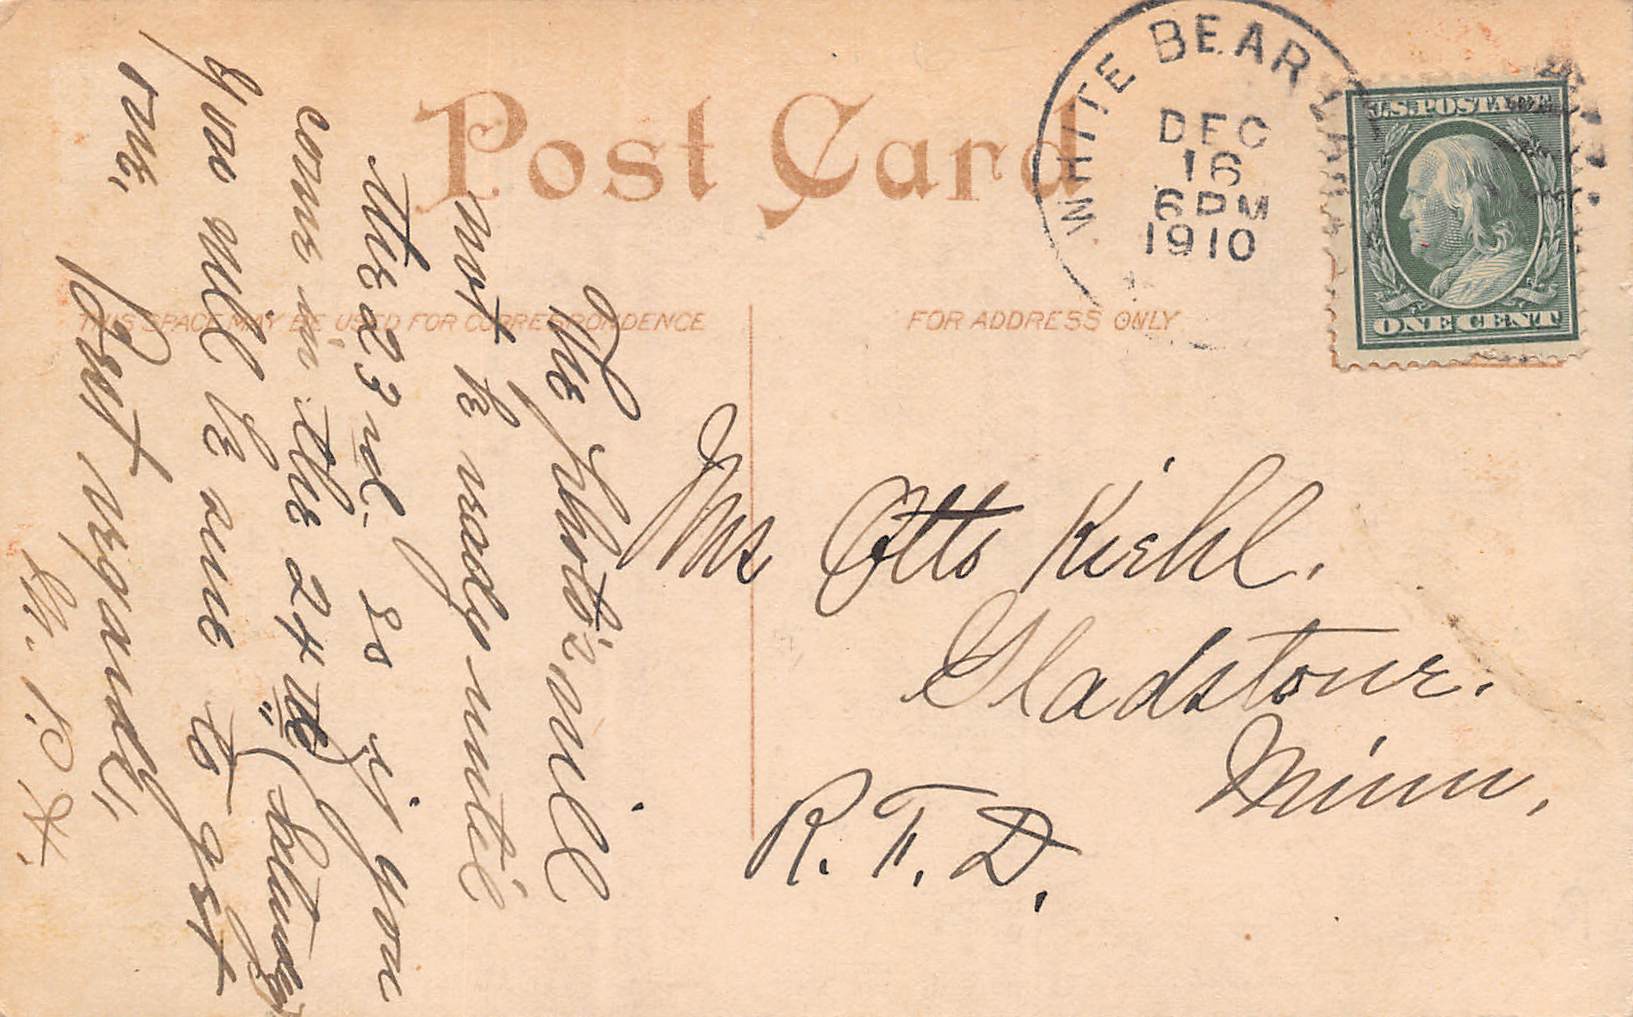 Post Card
THIS SPACE MAY BE USED FOR CORRESPONDENCE
FOR ADDRESS ONLY
WHITE BEAR LAKE
DEC
16
6 PM
1910
U.S. POSTAGE
ONE CENT
The photo's will
not be ready until
the 23rd. so if you
come in the 24th (Saturday)
you will be sure to get
me.
Best regards,
Mrs Otto Kiehl.
Gladstone.
Minn.
R. F. D.